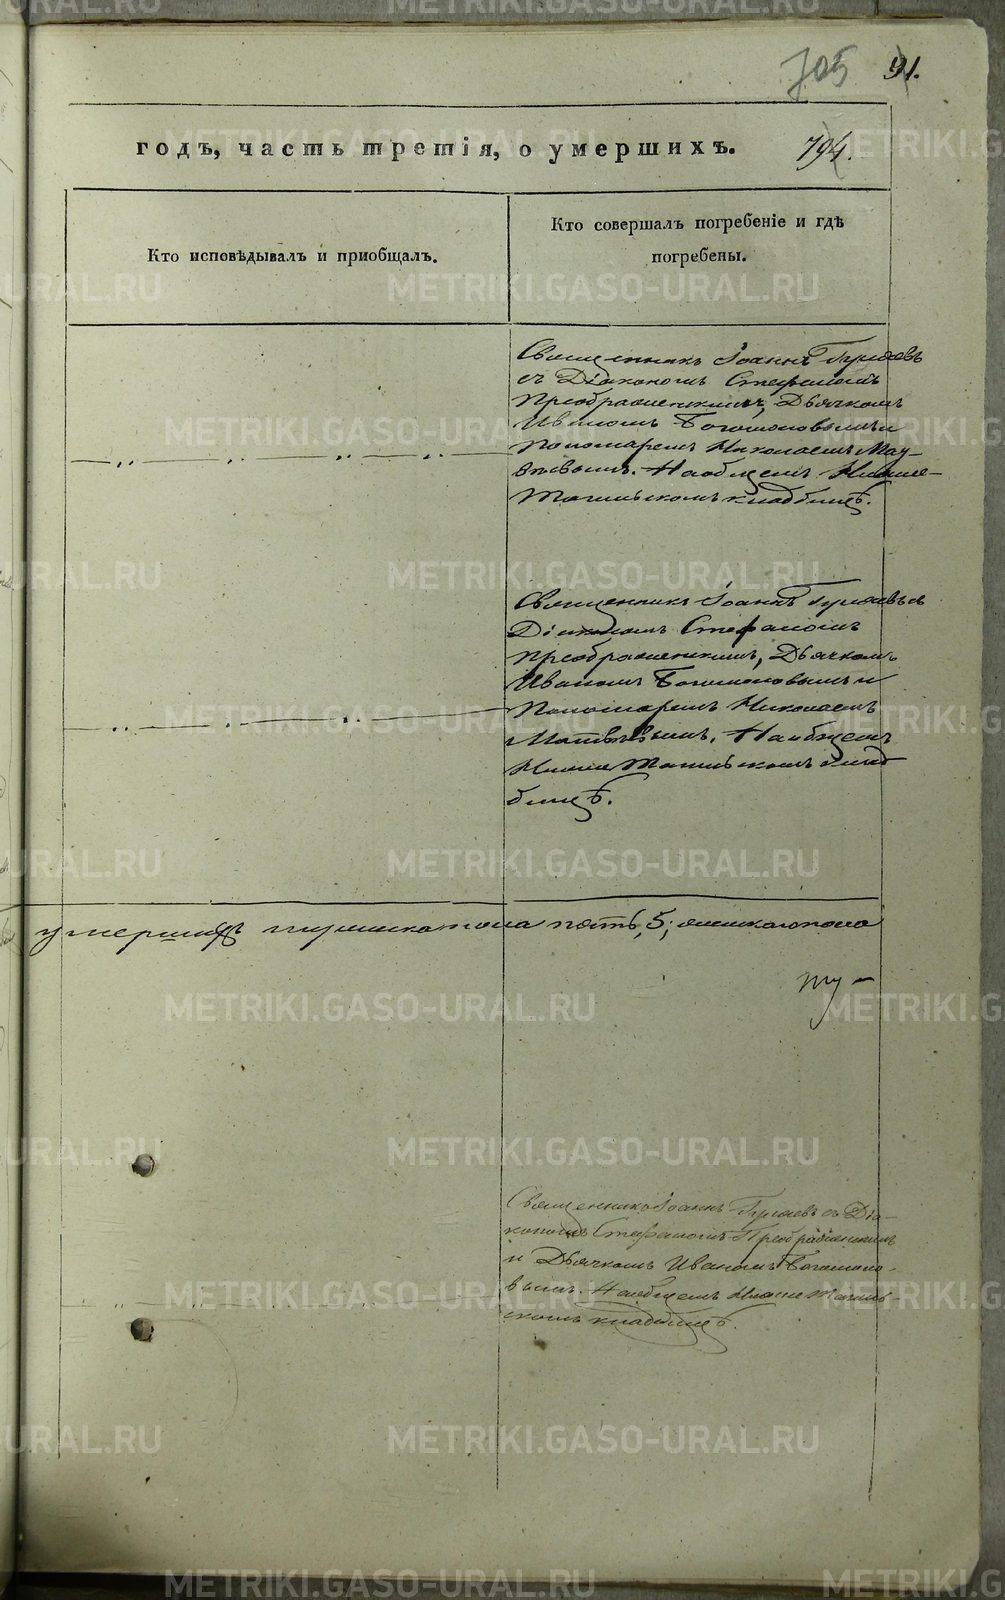 705 91.
годъ, часть третія, о умершихъ. 794.
Кто исповѣдывалъ и пріобщалъ.
Кто совершалъ погребеніе и гдѣ
погребены.
Священникъ Іоаннъ
съ Діакономъ Стефаномъ
Преображенскимъ, Дьячкомъ
Иваномъ и
Пономаремъ Николаемъ
На общемъ Нижне-
Тагильскомъ кладбищѣ.
Священникъ Іоаннъ съ
Діакономъ Стефаномъ
Преображенскимъ, Дьячкомъ
Иваномъ и
Пономаремъ Николаемъ
Матвѣевымъ. На общемъ
Нижне Тагильскомъ клад
бищѣ.
умершихъ мужска пола пять, 5; женскаго пола
Священникъ Іоаннъ съ Діа-
кономъ Стефаномъ Преображенскимъ
и Дьячкомъ Иваномъ
На общемъ Нижне Тагиль-
скомъ кладбищѣ.
METRIKI.GASO-URAL.RU